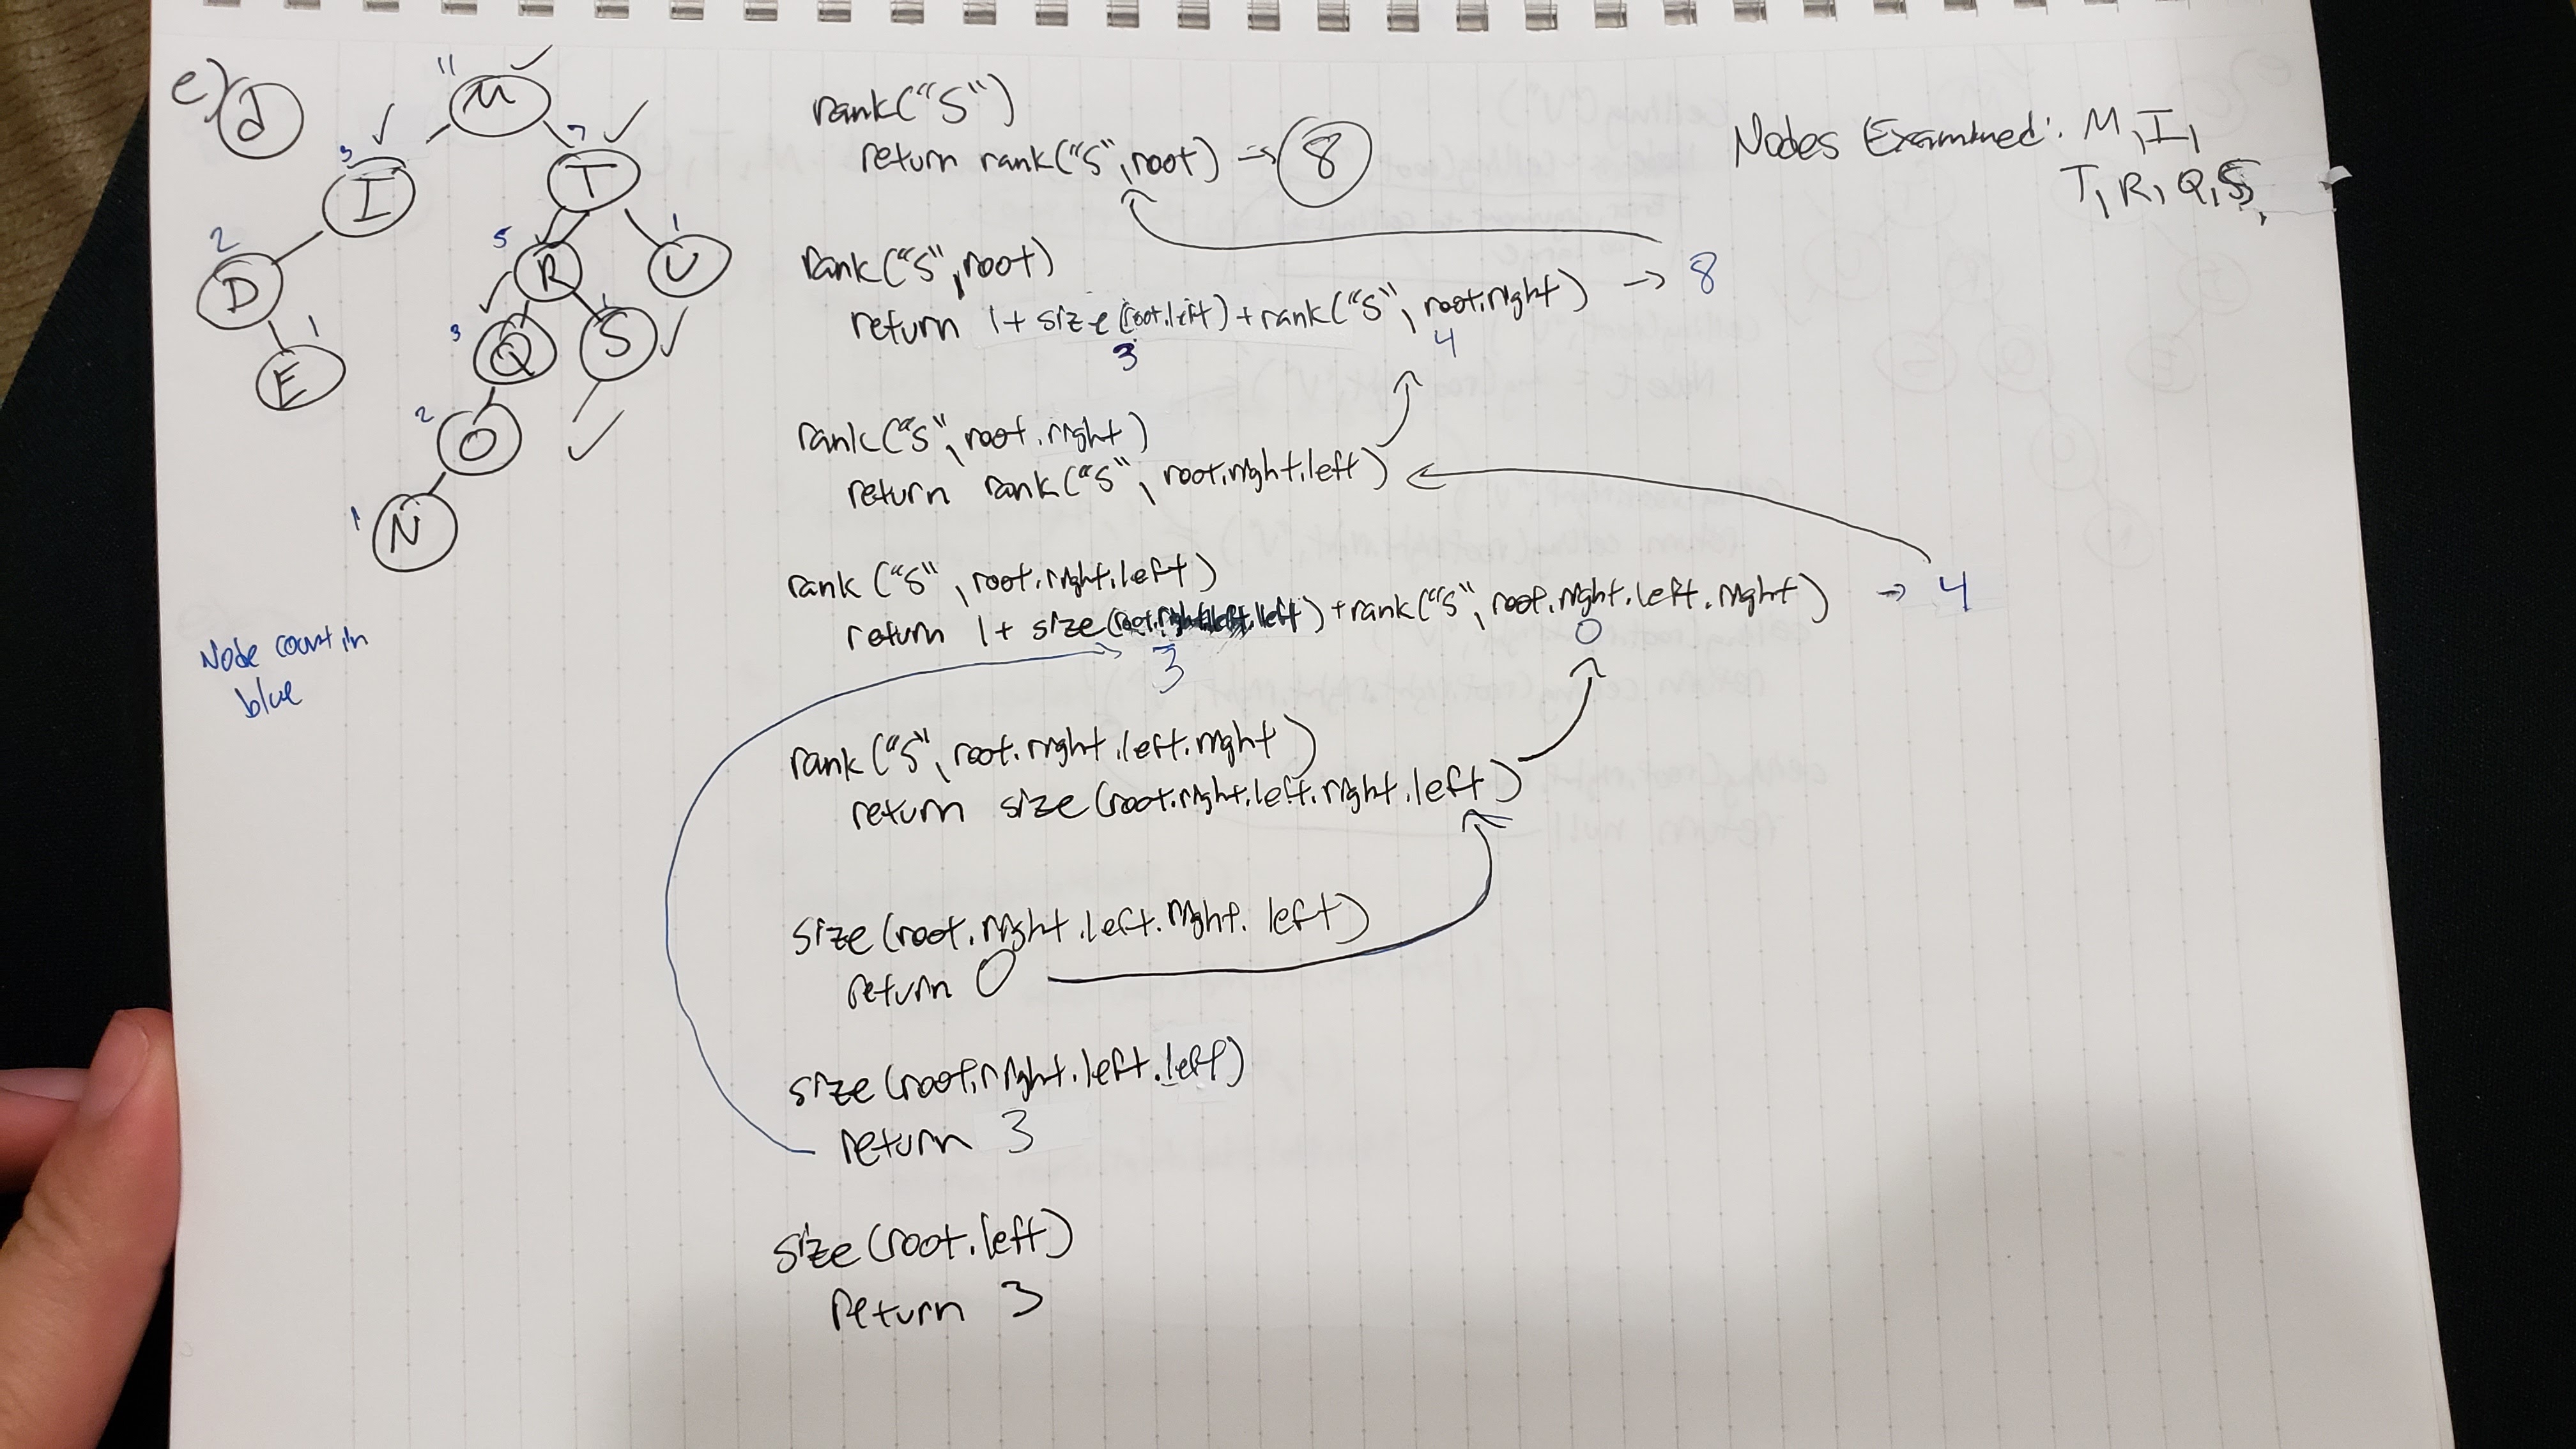 e) d
11 M
3 I
7 T
2 D
5 R
1 U
1 E
3 Q
1 S
2 O
1 N
Node count in
blue
rank("S")
return rank("S", root) → 8
rank("S", root)
return 1 + size(root.left) + rank("S", root.right) → 8
3 4
rank("S", root.right)
return rank("S", root.right.left)
rank("S", root.right.left)
return 1 + size(root.right.left.left) + rank("S", root.right.left.right) → 4
3 0
rank("S", root.right.left.right)
return size(root.right.left.right.left)
size(root.right.left.right.left)
return 0
size(root.right.left.left)
return 3
size(root.left)
return 3
Nodes Examined: M, I,
T, R, Q, S,